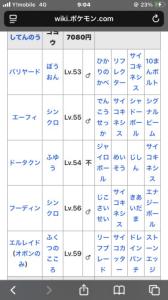 Y!mobile 4G 9:04 23%
wiki.ポケモン.com
してんのう ゴヨウ 7080円
バリヤード ぼうおん Lv.53 ♂ ひかりのかべ リフレクター サイコキネシス 10まんボルト
エーフィ シンクロ Lv.55 ♂ でんこうせっか サイコキネシス シャドーボール シグナルビーム
ドータクン ふゆう Lv.54 不 ジャイロボール めいそう じしん サイコキネシス
フーディン シンクロ Lv.56 ♂ じこさいせい サイコキネシス きあいだま エナジーボール
エルレイド(オボンのみ) ふくつのこころ Lv.59 ♂ リーフブレード サイコカッター ドレインパンチ ストーンエッジ